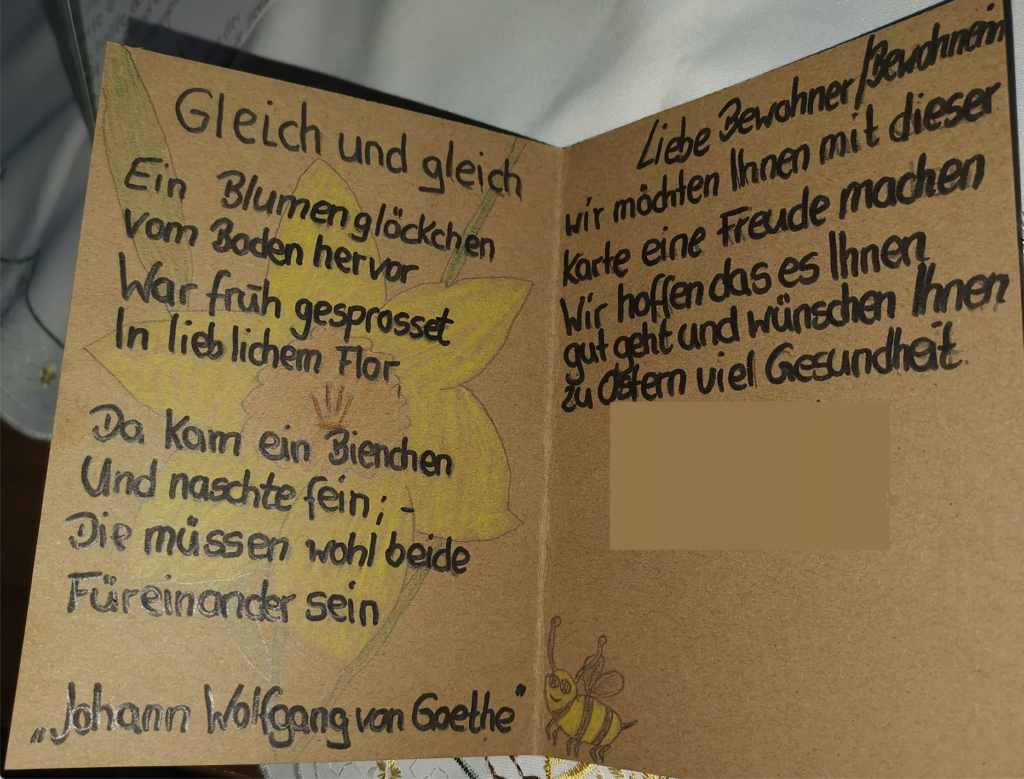 Gleich und gleich
Ein Blumenglöckchen
vom Boden hervor
War früh gesprosset
In lieblichem Flor
Da kam ein Bienchen
Und naschte fein; -
Die müssen wohl beide
Füreinander sein
„Johann Wolfgang von Goethe"
Liebe Bewohner/Bewohnerin
wir möchten Ihnen mit dieser
Karte eine Freude machen
Wir hoffen das es Ihnen
gut geht und wünschen Ihnen
zu Ostern viel Gesundheit.